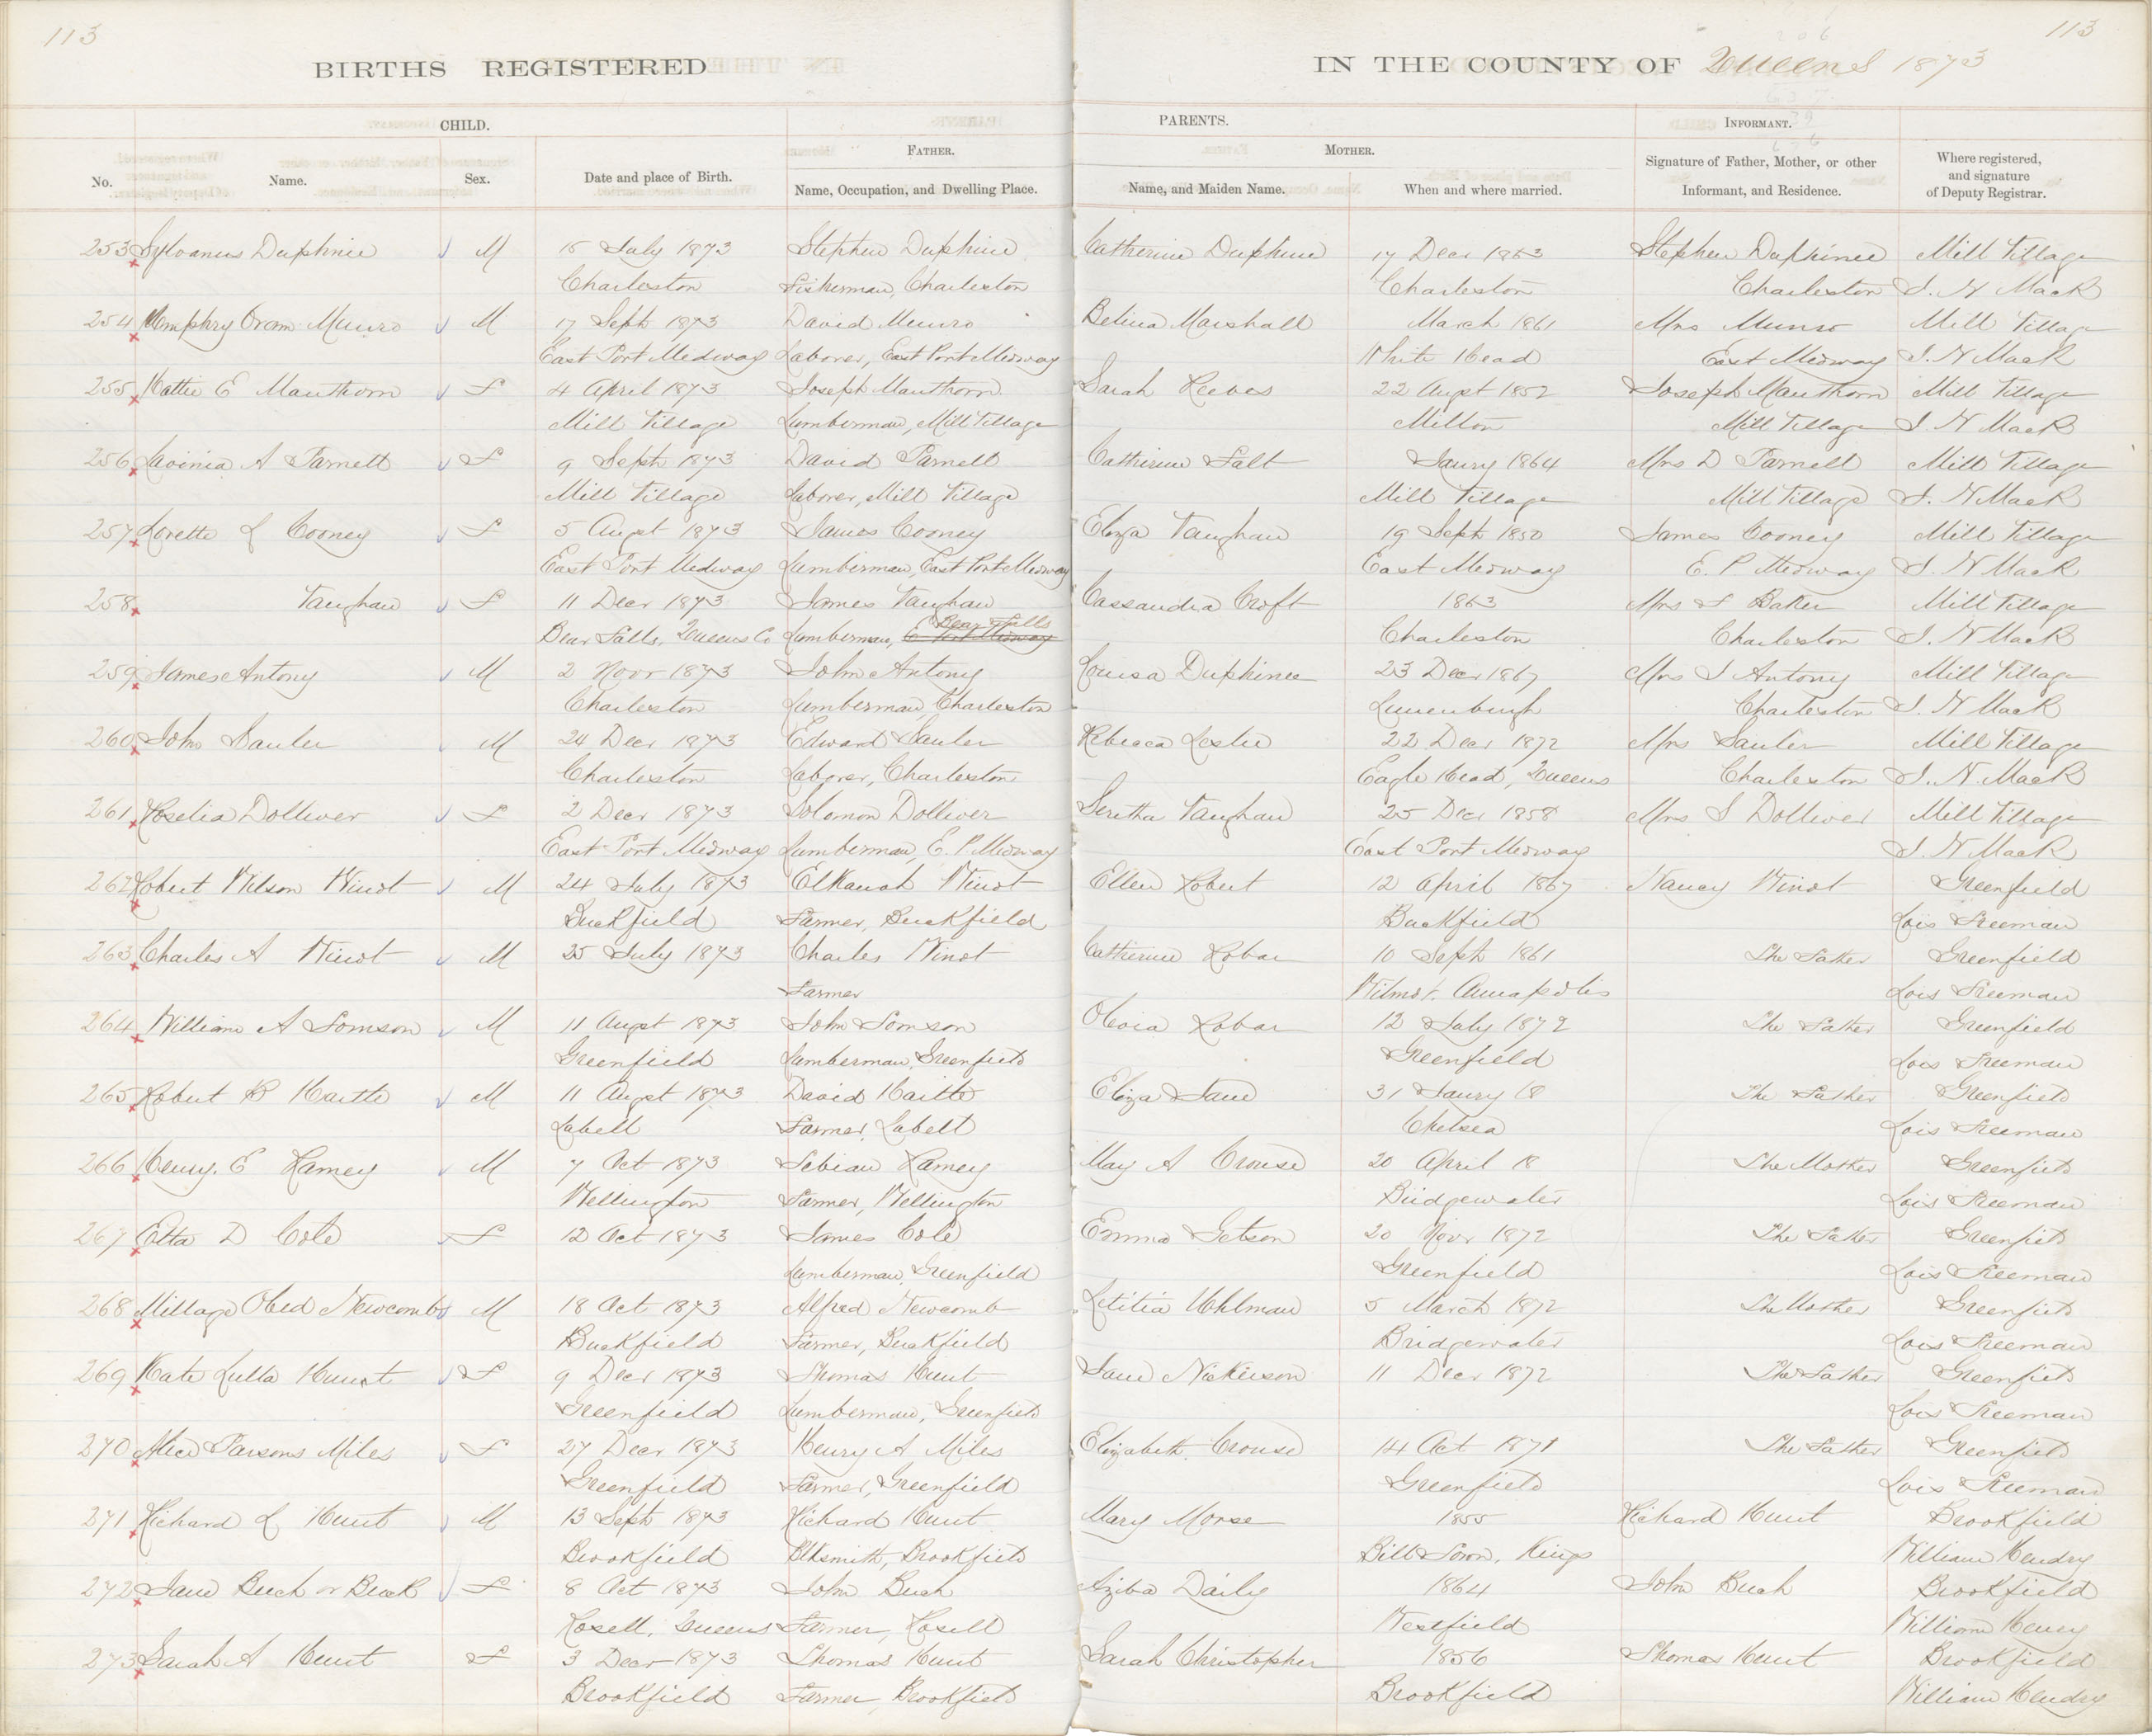 113
113
BIRTHS REGISTERED IN THE COUNTY OF Queens 1873
CHILD. PARENTS. INFORMANT.
FATHER. MOTHER.
No. Name. Sex. Date and place of Birth. Name, Occupation, and Dwelling Place. Name, and Maiden Name. When and where married. Signature of Father, Mother, or other Informant, and Residence. Where registered, and signature of Deputy Registrar.
253 Sylvanus Daphinie M 15 July 1873 Stephen Daphine Catherine Daphine 17 Decr 1863 Stephen Daphinee Mill Village
Charleston Fisherman, Charleston Charleston Charleston S. N. Mack
254 Humphry Oram Munro M 17 Sept 1873 David Munro Belina Marshall March 1861 Mrs Munro Mill Village
East Port Medway Laborer, East Port Medway White Head East Medway S. N Mack
255 Hattie E Manthorn F 4 April 1873 Joseph Manthorn Sarah Reeves 22 Augst 1852 Joseph Manthorn Mill Village
Mill Village Lumberman, Mill Village Milton Mill Village S. N Mack
256 Lavinia A Parnell F 9 Sept 1873 David Parnell Catherine Falt Jaury 1864 Mrs D Parnell Mill Village
Mill Village Laborer, Mill Village Mill Village Mill Village S. N Mack
257 Lorette L Cooney F 5 Augst 1873 James Cooney Eliza Vaughan 19 Sept 1850 James Cooney Mill Village
East Port Medway Lumberman, East Port Medway East Medway E. P Medway S. N Mack
258 Vaughan F 11 Decr 1873 James Vaughan Cassandra Croft 1863 Mrs S Baker Mill Village
Bear Falls, Queens Co Lumberman, E Port Medway Bear Falls Charleston Charleston S. N Mack
259 James Antony M 2 Novr 1873 John Antony Louisa Daphinee 23 Decr 1867 Mrs J Antony Mill Village
Charleston Lumberman, Charleston Lunenburgh Charleston S. N Mack
260 John Sauler M 24 Decr 1873 Edward Sauler Rebecca Leslie 22 Decr 1872 Mrs Sauler Mill Village
Charleston Laborer, Charleston Eagle Head, Queens Charleston S. N. Mack
261 Roselia Dolliver F 2 Decr 1873 Solomon Dolliver Seretha Vaughan 25 Decr 1858 Mrs S Dolliver Mill Village
East Port Medway Lumberman, E. P. Medway East Port Medway S. N Mack
262 Robert Wilson Winot M 24 July 1873 Elkanah Winot Ellen Robert 12 April 1867 Nancy Winot Greenfield
Buckfield Farmer, Buckfield Buckfield Lois Freeman
263 Charles A Winot M 25 July 1873 Charles Winot Catherine Robar 10 Sept 1861 The Father Greenfield
Farmer Wilmot. Annapolis Lois Freeman
264 William A Lomson M 11 Augst 1873 John Lomson Olivia Robar 12 July 1872 The Father Greenfield
Greenfield Lumberman, Greenfield Greenfield Lois Freeman
265 Robert B Hartte M 11 Augst 1873 David Hartte Eliza Jane 31 Jaury 18 The Father Greenfield
Labell Farmer, Labell Chelsea Lois Freeman
266 Henry. E Ramey M 7 Oct 1873 Tobias Ramey May A Crouse 20 April 18 The Mother Greenfield
Wellington Farmer, Wellington Bridgewater Lois Freeman
267 Etta D Cole F 12 Oct 1873 James Cole Emma Getson 20 Novr 1872 The Father Greenfield
Lumberman, Greenfield Greenfield Lois Freeman
268 Millage Obed Newcombs M 18 Oct 1873 Alfred Newcomb Letitia Uhlman 5 March 1872 The Mother Greenfield
Buckfield Farmer, Buckfield Bridgewater Lois Freeman
269 Kate Lulla Hunt F 9 Decr 1873 Thomas Hunt Jane Nickerson 11 Decr 1872 The Father Greenfield
Greenfield Lumberman, Greenfield Lois Freeman
270 Alice Parsons Miles F 27 Decr 1873 Henry A Miles Elizabeth Crouse 14 Oct 1871 The Father Greenfield
Greenfield Farmer, Greenfield Greenfield Lois Freeman
271 Richard L Hunt M 13 Sept 1873 Richard Hunt Mary Morse 1855 Richard Hunt Brookfield
Brookfield Blksmith, Brookfield Bill Town, Kings William Hendry
272 Jane Buch or Buck F 8 Oct 1873 John Buch Aziba Daily 1864 John Buch Brookfield
Rosell, Queens Farmer, Rosell Westfield William Henry
273 Sarah A Hunt F 3 Decr 1873 Thomas Hunt Sarah Christopher 1856 Thomas Hunt Brookfield
Brookfield Farmer, Brookfield Brookfield William Hendry